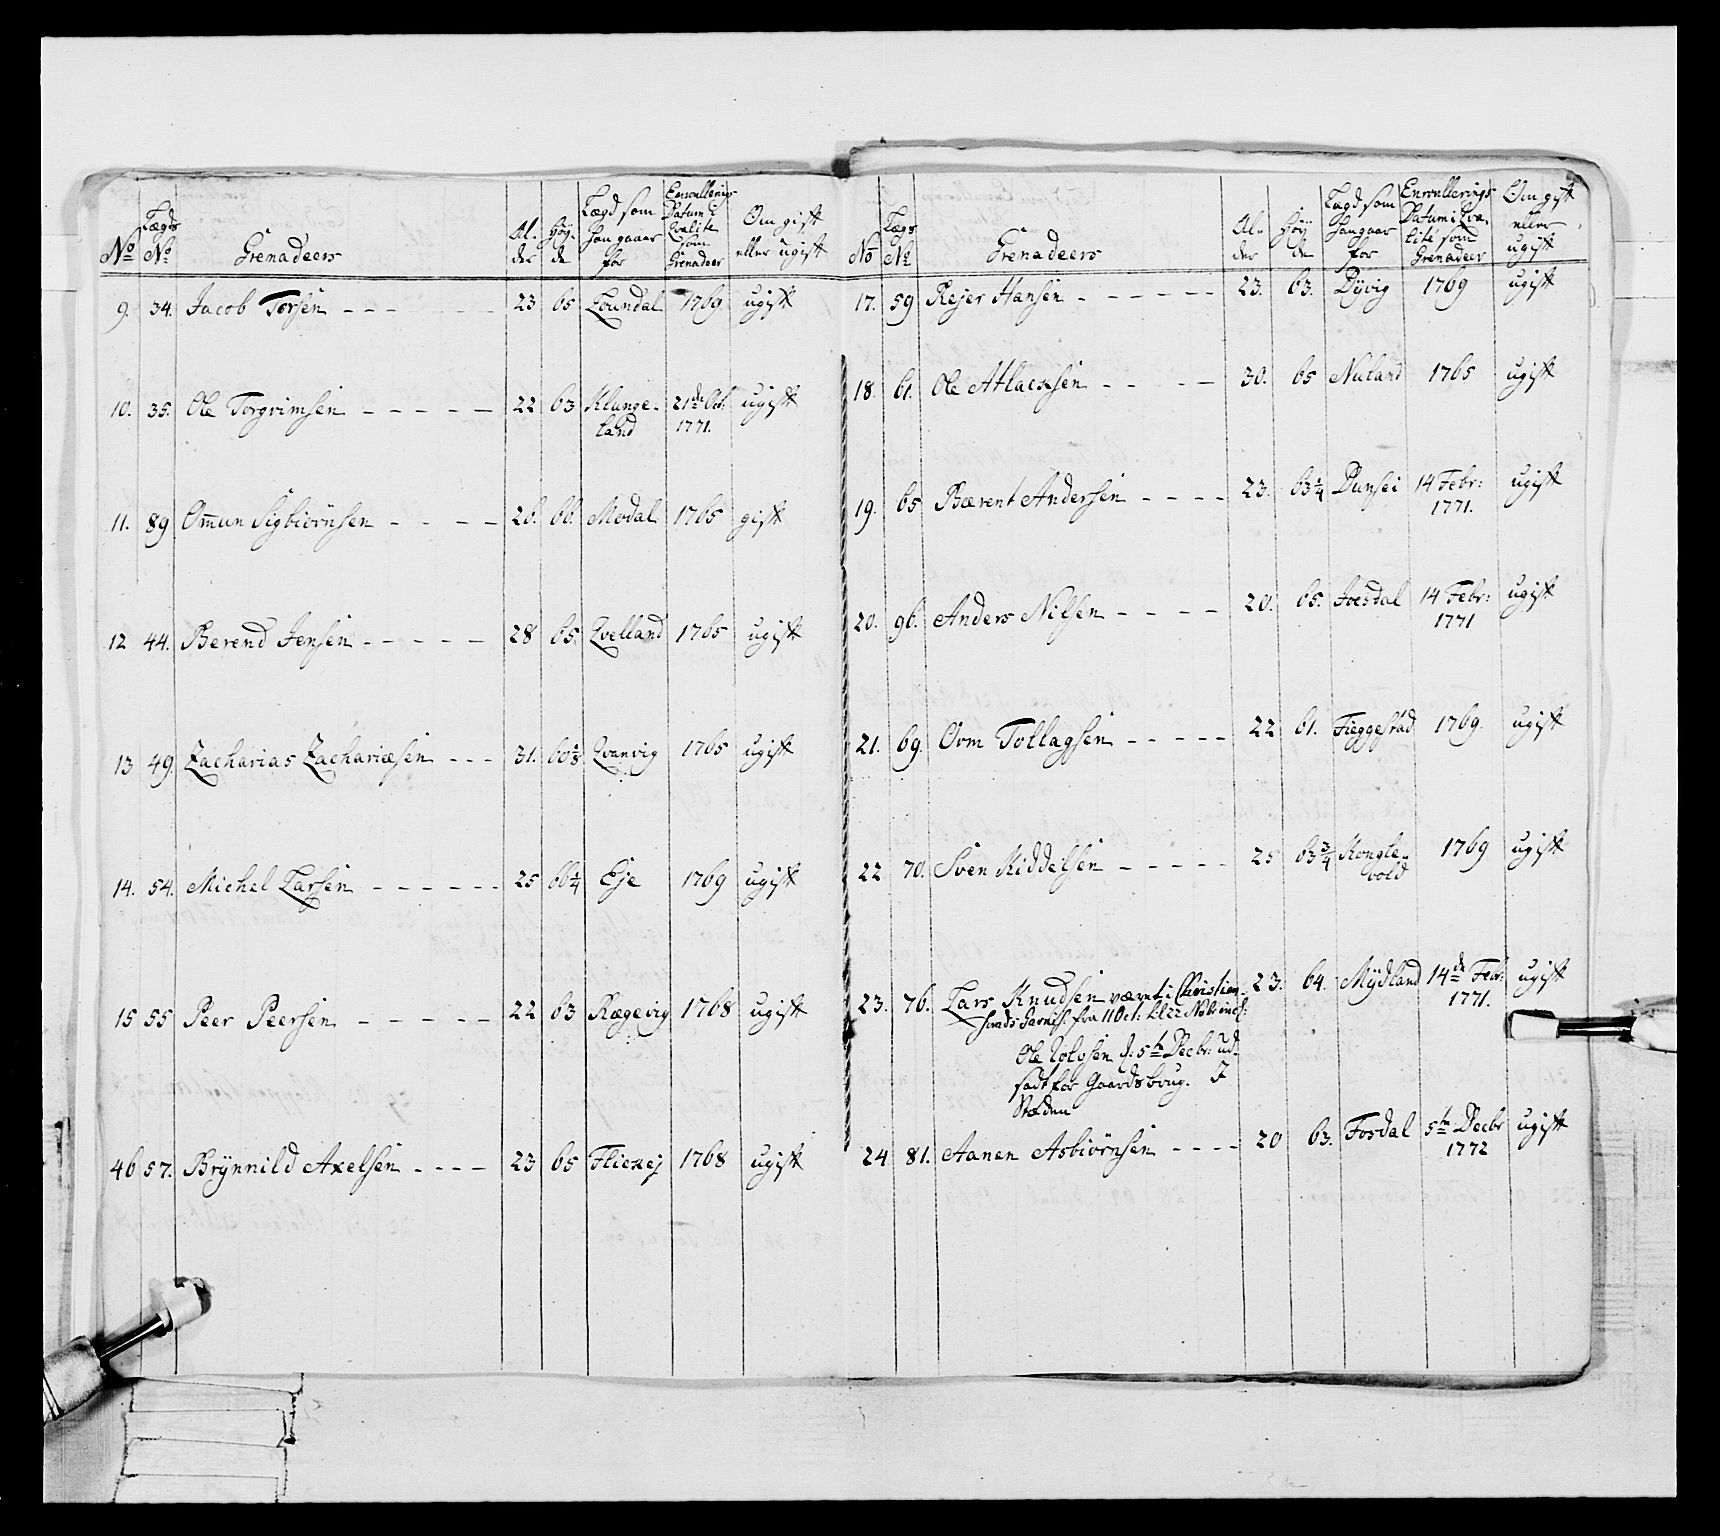 No Lægds No Grenadeers Al- der Høy- de Lægd som han gaaer for Enroullerings Datum i Qvalite som Grenadeer Om gift eller ugift
9. 34. Jacob Torsen 23 65 Loundal 1769 ugift
10. 35. Ole Torgrimsen 22 63 Klunge- land 21de Oct: 1771. ugift
11. 89 Omun Sigbiörnsen 26. 66. Modal 1765 gift
12 44. Berend Jensen 28 65. Qvelland 1765 ugift
13 49. Zacharias Zachariæsen 31. 60 1/8 Qvanvig 1765 ugift
14. 54. Michel Larsen 25 66 1/4 Eje 1769 ugift
15 55 Peer Peersen 22 63 Rægevig 1768 ugift
46 57. Brÿnnild Axelsen 23 65 Flickej 1768 ugift
No Lægs No Grenadeers Al- der Höy de Lægd som han gaar for Enroullerings Datum i Qva- lité som Grenadeer Om gift eller ugift
17. 59 Rejer Hansen 23. 63. Dÿvig 1769 ugift
18. 61. Ole Atlacksen 30. 65 Nuland 1765 ugift
19. 65 Bærent Andersen 23. 63 1/4 Dunsei 14 Febr: 1771. ugift
20. 96. Anders Nilsen 20. 65. Joesdal 14 Febr: 1771 ugift
21. 69. Orm Tollagsen 22 61. Fieggestad 1769. ugift
22 70. Sven Kiddelsen 25 63 3/4 Kongle- vold 1769 ugift
23. 76. Lars Knudsen været i Christian- 23. 64. Mÿdland 14de Febr: 1771. ugift
sands Garnis: fra 11 Oct: til 22 Nobr incl:
Ole d: 5te Decbr: ud-
sadt for Gaardsbrug. I
Stæden
24 81. Aanen Asbiörnsen 20 63. Fosdal 5te Decbr 1772 ugift